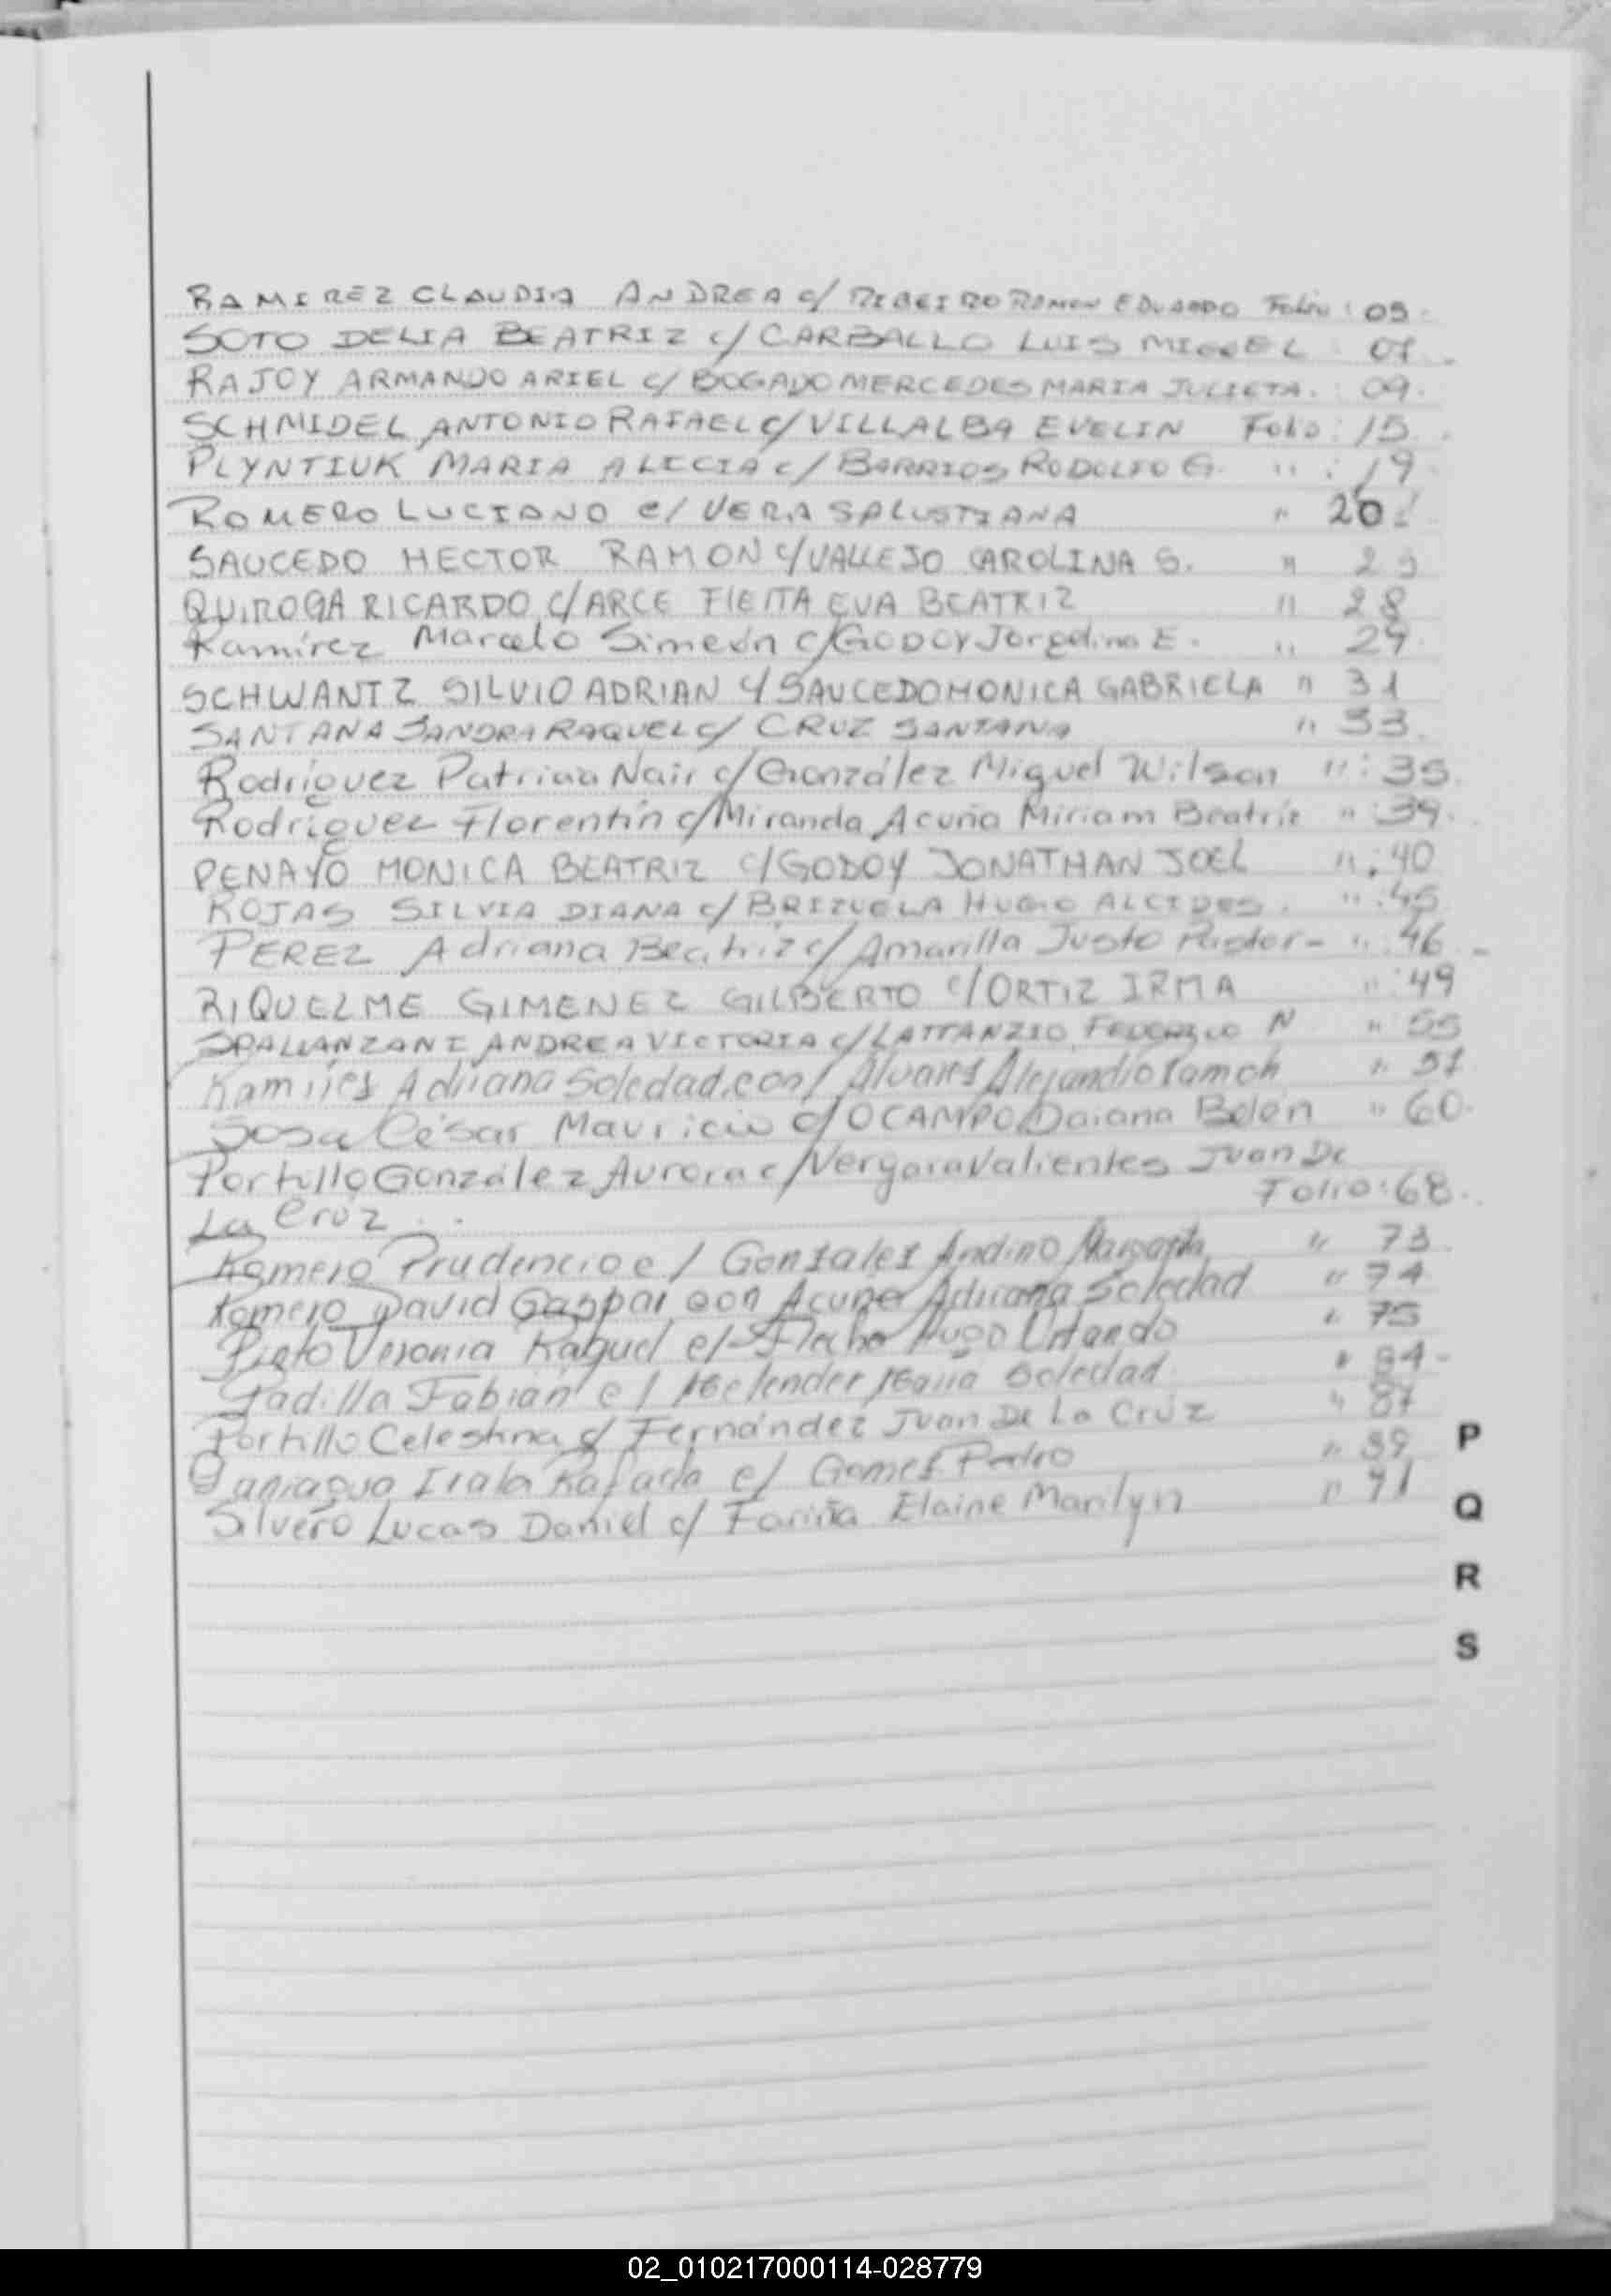 RAMIREZ CLAUDIA ANDREA c/ RIBEIRO RAMON EDUARDO Folio: 05
SOTO DELIA BEATRIZ c/ CARBALLO LUIS MIGUEL : 07
RAJOY ARMANDO ARIEL c/ BOGADO MERCEDES MARIA JULIETA. : 09.
SCHMIDEL ANTONIO RAFAEL c/ VILLALBA EVELIN Folio: 15
PLYNTIUK MARIA ALICIA c/ BARRIOS RODOLFO G. " : 19
ROMERO LUCIANO c/ VERA SALUSTIANA " 20
SAUCEDO HECTOR RAMON c/ VALLEJO CAROLINA S. " 25
QUIROGA RICARDO c/ ARCE FLEITA EVA BEATRIZ " 28
Ramírez Marcelo Simeón c/ GODOY Jorgelina E. " 29
SCHWANTZ SILVIO ADRIAN c/ SAUCEDO MONICA GABRIELA " 31
SANTANA SANDRA RAQUEL c/ CRUZ SANTANA " 33
Rodríguez Patricia Nair c/ González Miguel Wilson " : 35
Rodríguez Florentín c/ Miranda Acuña Miriam Beatriz " : 39.
PENAYO MONICA BEATRIZ c/ GODOY JONATHAN JOEL " : 40
ROJAS SILVIA DIANA c/ BRIZUELA HUGO ALCIDES. " : 45
PEREZ Adriana Beatriz c/ Amarilla Justo Pastor - " : 46
RIQUELME GIMENEZ GILBERTO c/ ORTIZ IRMA " : 49
SPALLANZANI ANDREA VICTORIA c/ LATTANZIO FEDERICO N " 55
Ramires Adriana Soledad con/ Alvares Alejandro Ramon " 57
Sosa César Mauricio c/ OCAMPO Daiana Belén " 60.
Portillo González Aurora c/ Vergara Valientes Juan De
La Cruz Folio: 68.
Romero Prudencio c/ Gonzales Andino Margarita " 73
Romero David Gaspar con Acuña Adriana Soledad " 74
Prieto Veronia Raquel c/ Hugo Orlando " 75
Padilla Fabián c/ Maria Soledad " 84-
Portillo Celestina c/ Fernández Juan De La Cruz " 87
Paniagua Irala Rafaela c/ Gomes Pedro " 89
Silvero Lucas Daniel c/ Fariña Elaine Marilyn " 91
P
Q
R
S
02_010217000114-028779